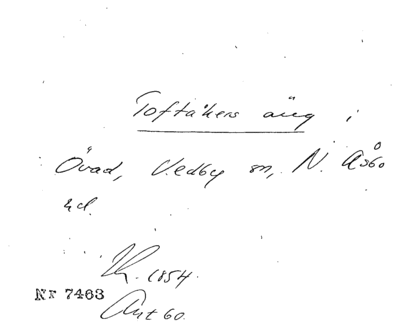 Toftåkers äng i
Övad, Vedby sn, N. Åsbo
hd.
1854.
Nr 7463
Ant 60.